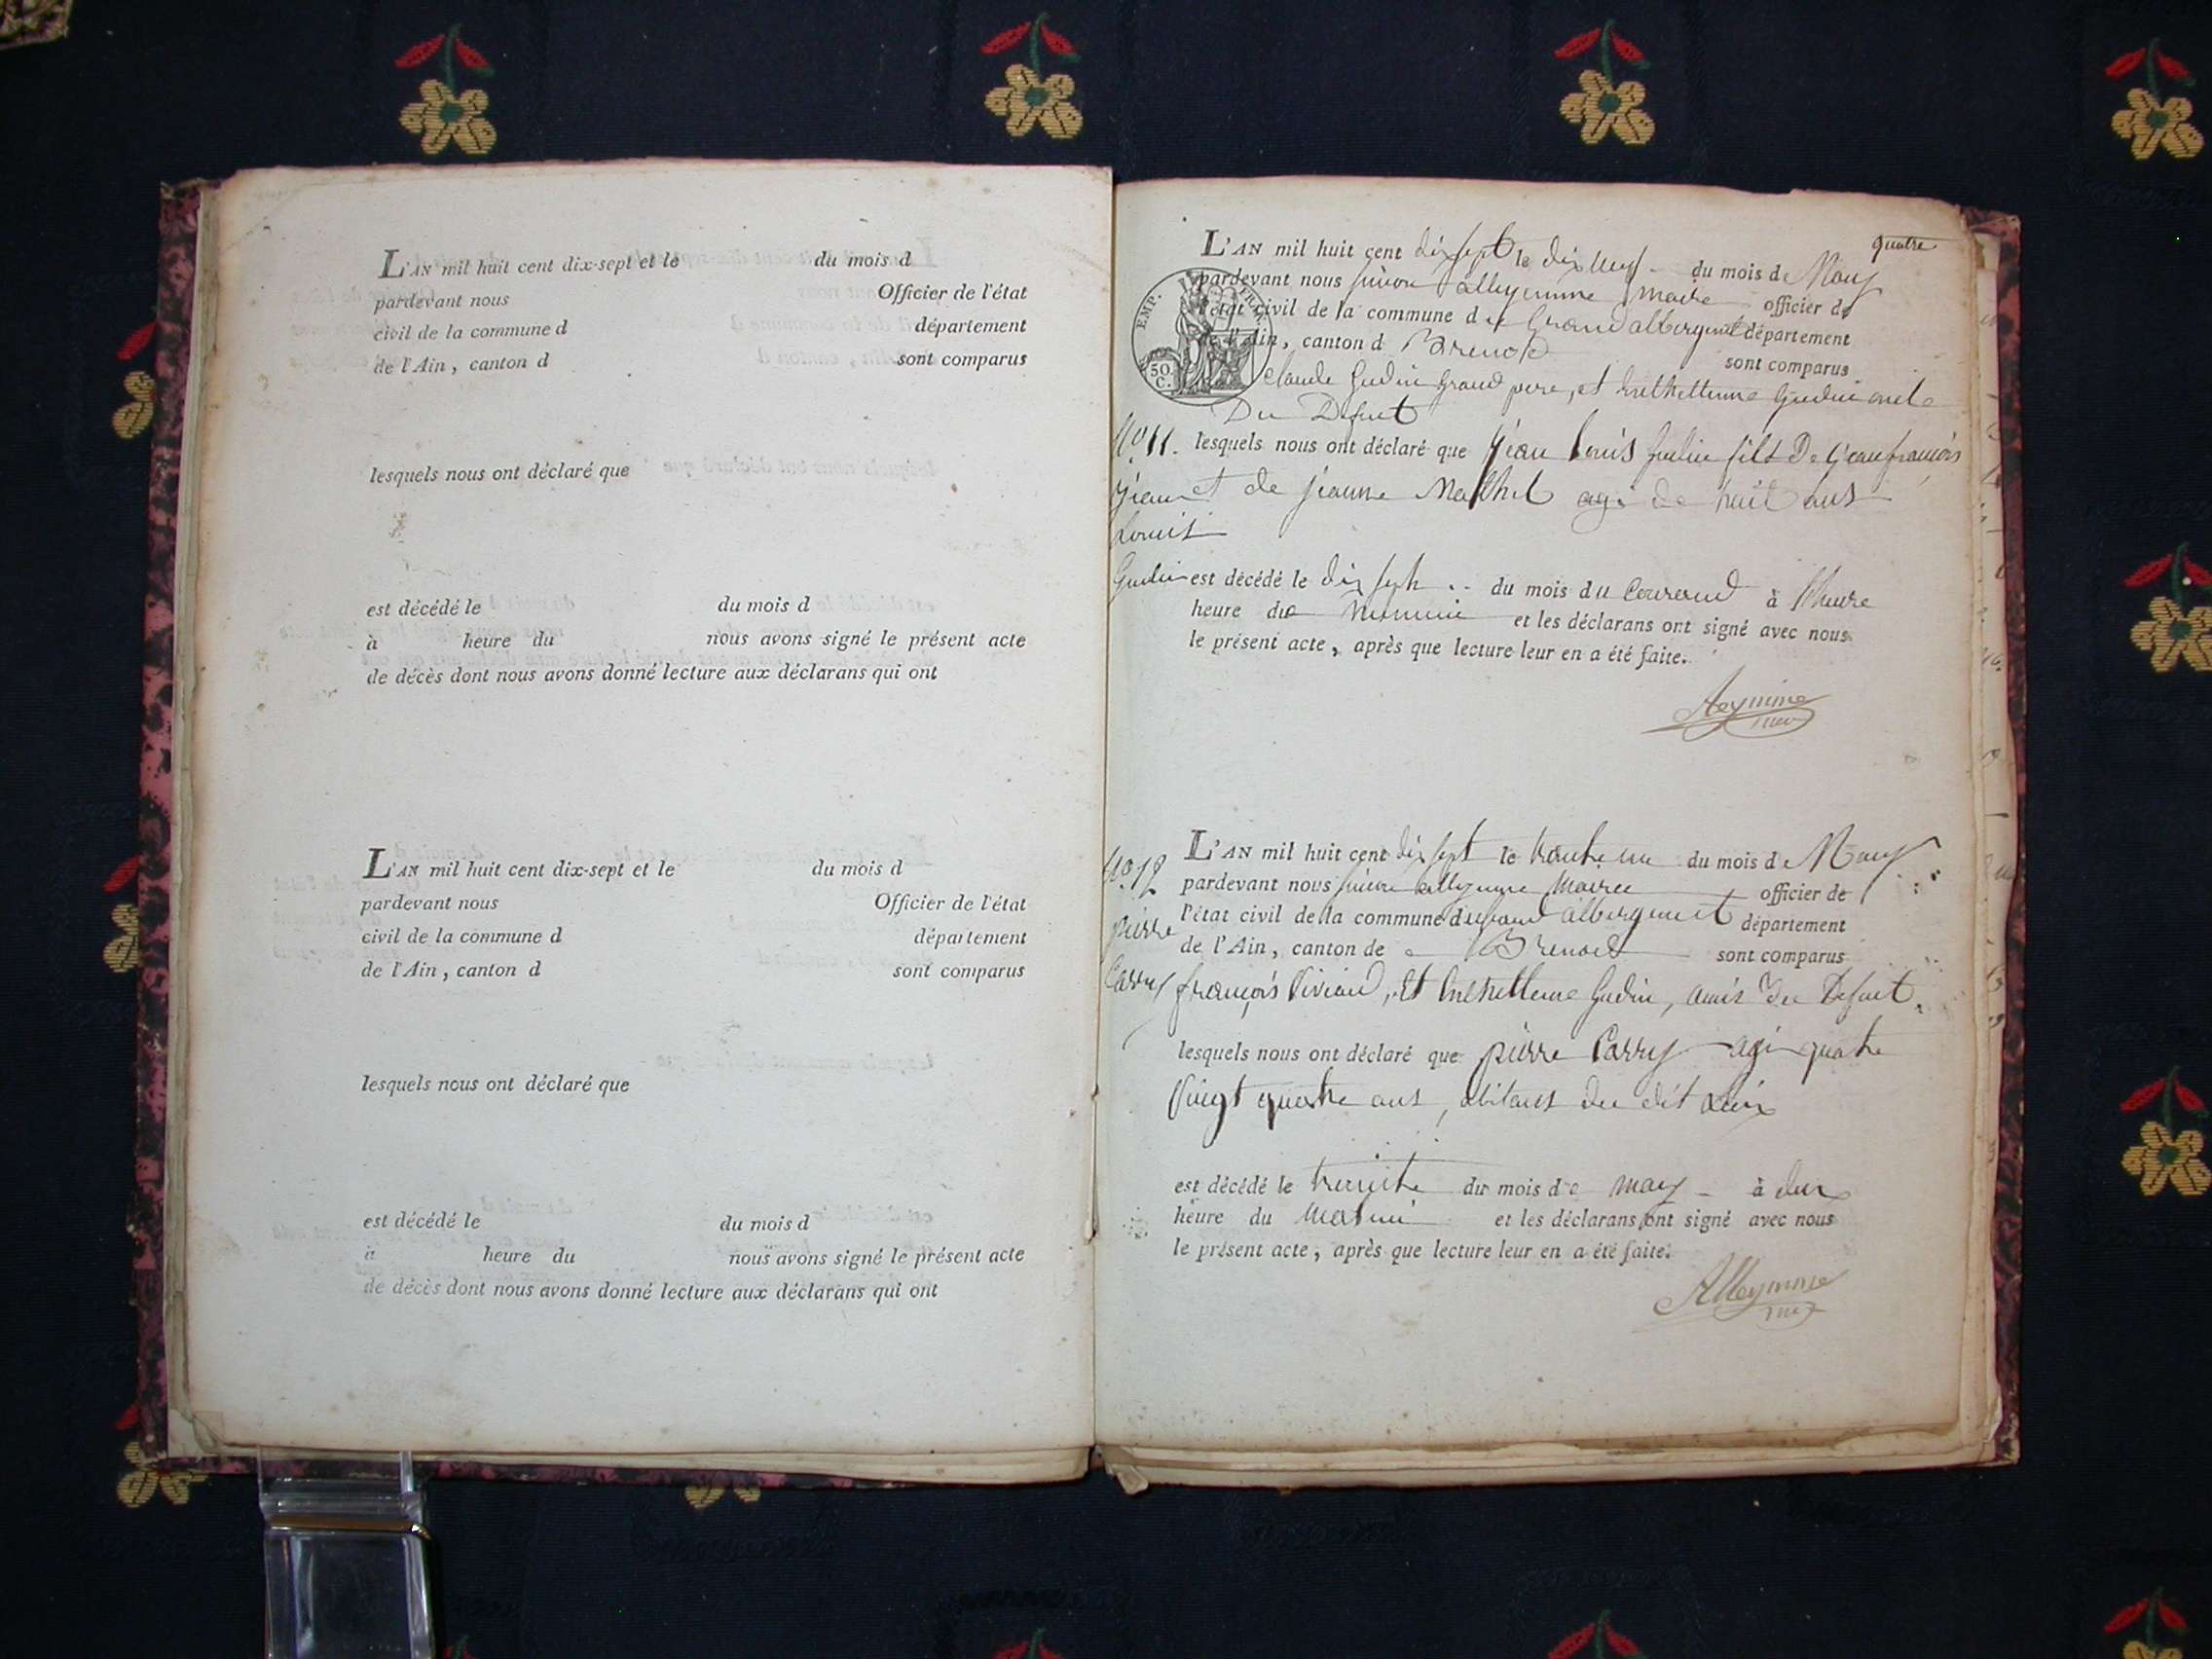 L'AN mil huit cent dix-sept et le du mois d
pardevant nous Officier de l'état
civil de la commune d département
de l'Ain, canton d sont comparus
lesquels nous ont déclaré que
est décédé le du mois d
à heure du nous avons signé le présent acte
de décès dont nous avons donné lecture aux déclarans qui ont
L'AN mil huit cent dix-sept et le du mois d
pardevant nous Officier de l'état
civil de la commune d département
de l'Ain, canton d sont comparus
lesquels nous ont déclaré que
est décédé le du mois d
à heure du nous avons signé le présent acte
de décès dont nous avons donné lecture aux déclarans qui ont
quatre
L'AN mil huit cent dix sept le dix neuf du mois de May
pardevant nous maire officier de
l'état civil de la commune du Grand albergement département
de l'Ain, canton d Brenod sont comparus
EMP. FRAN.
50 C.
Claude Gudin Grand pere, et Gudin oncle
Du Defunt
No 11. lesquels nous ont déclaré que Jean Louis Gudin fils De Jean françois
Jean et de jeanne agé de huit ans
Louis
Gudin est décédé le dix sept du mois du Courend à l'heure
heure de et les déclarans ont signé avec nous
le présent acte, après que lecture leur en a été faite.
No 12 L'AN mil huit cent dix sept le trante un du mois de May
pardevant nous Maire officier de
pierre l'état civil de la commune du grand albergement département
de l'Ain, canton de Brenod sont comparus
Carry françois Vivian, et Gudin, amis du Defunt.
lesquels nous ont déclaré que pierre Carry agé quatre
Vingt quatre ans, abitans du dit Lieux
est décédé le trente du mois de may à deux
heure du matin et les déclarans ont signé avec nous
le présent acte, après que lecture leur en a été faite.